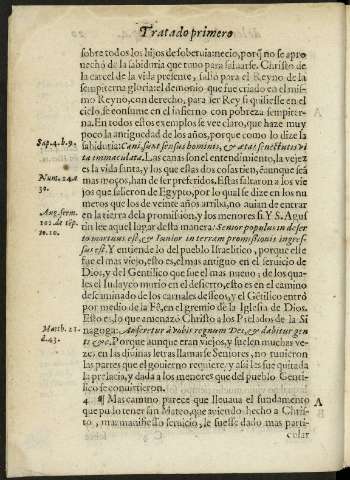 Tratado primero
sobre todos los hijos de soberuia: necio, porq̃ no se apro
uechó de la sabiduria que tuuo para saluarse. Christo de
la carcel de la vida presente, salio para el Reyno de la
sempiterna gloria: el demonio que fue criado en el mis-
mo Reyno, con derecho, para ser Rey si quisiesse en el
cielo, se consume en el infierno con pobreza sempiter-
na. En todos estos exemplos se vee claro, que haze muy
poco la antiguedad de los años, porque como lo dize la
Sap. 4. b. 9.
sabiduria: Cani sunt sensus hominis, & ætas senectutis vi
ta immaculata. Las canas son el entendimiento, la vejez
es la vida santa, y los que estas dos cosas tiẽ, aunque seã
mas moços, han de ser preferidos. Estas faltaron a los vie
Num. 24. d
30.
jos que salieron de Egypto, por lo qual se dize en los nu
meros que los de veinte años arriba, no auian de entrar
en la tierra de la promission, y los menores si. Y S. Agus
tin lee aquel lugar desta manera: Senior populus in deser
to mortuus est, & Iunior in terram promissionis ingres-
sus est. Y entiende lo del pueblo Israelitico, porque este
fue el mas viejo, esto es, el mas antiguo en el seruicio de
Dios, y del Gentilico que fue el mas nueuo; de los qua-
les el Iudayco murio en el desierto, esto es en el camino
descaminado de los carnales desseos, y el Gẽtilico entrò
por medio de la Fè, en el gremio de la Iglesia de Dios.
Esto es lo que amenazò Christo a los Prelados de la Si
Matth. 21.
d. 43.
nagoga: Auferetur à vobis regnum Dei, & dabitur gen
ti &c. Porque aunque eran viejos, y suelen muchas ve-
zes en las diuinas letras llamarse Seniores, no tuuieron
las partes que el gouierno requiere, y assi les fue quitada
la prelacia, y dada a los menores que del pueblo Genti-
lico se conuirtieron.
4 ¶ Mas camino parece que lleuaua el fundamento
A
que pudo tener san Mateo, que auiendo hecho a Chris-
to, tan manifiesto seruicio, le fuesse dado mas parti-
cular